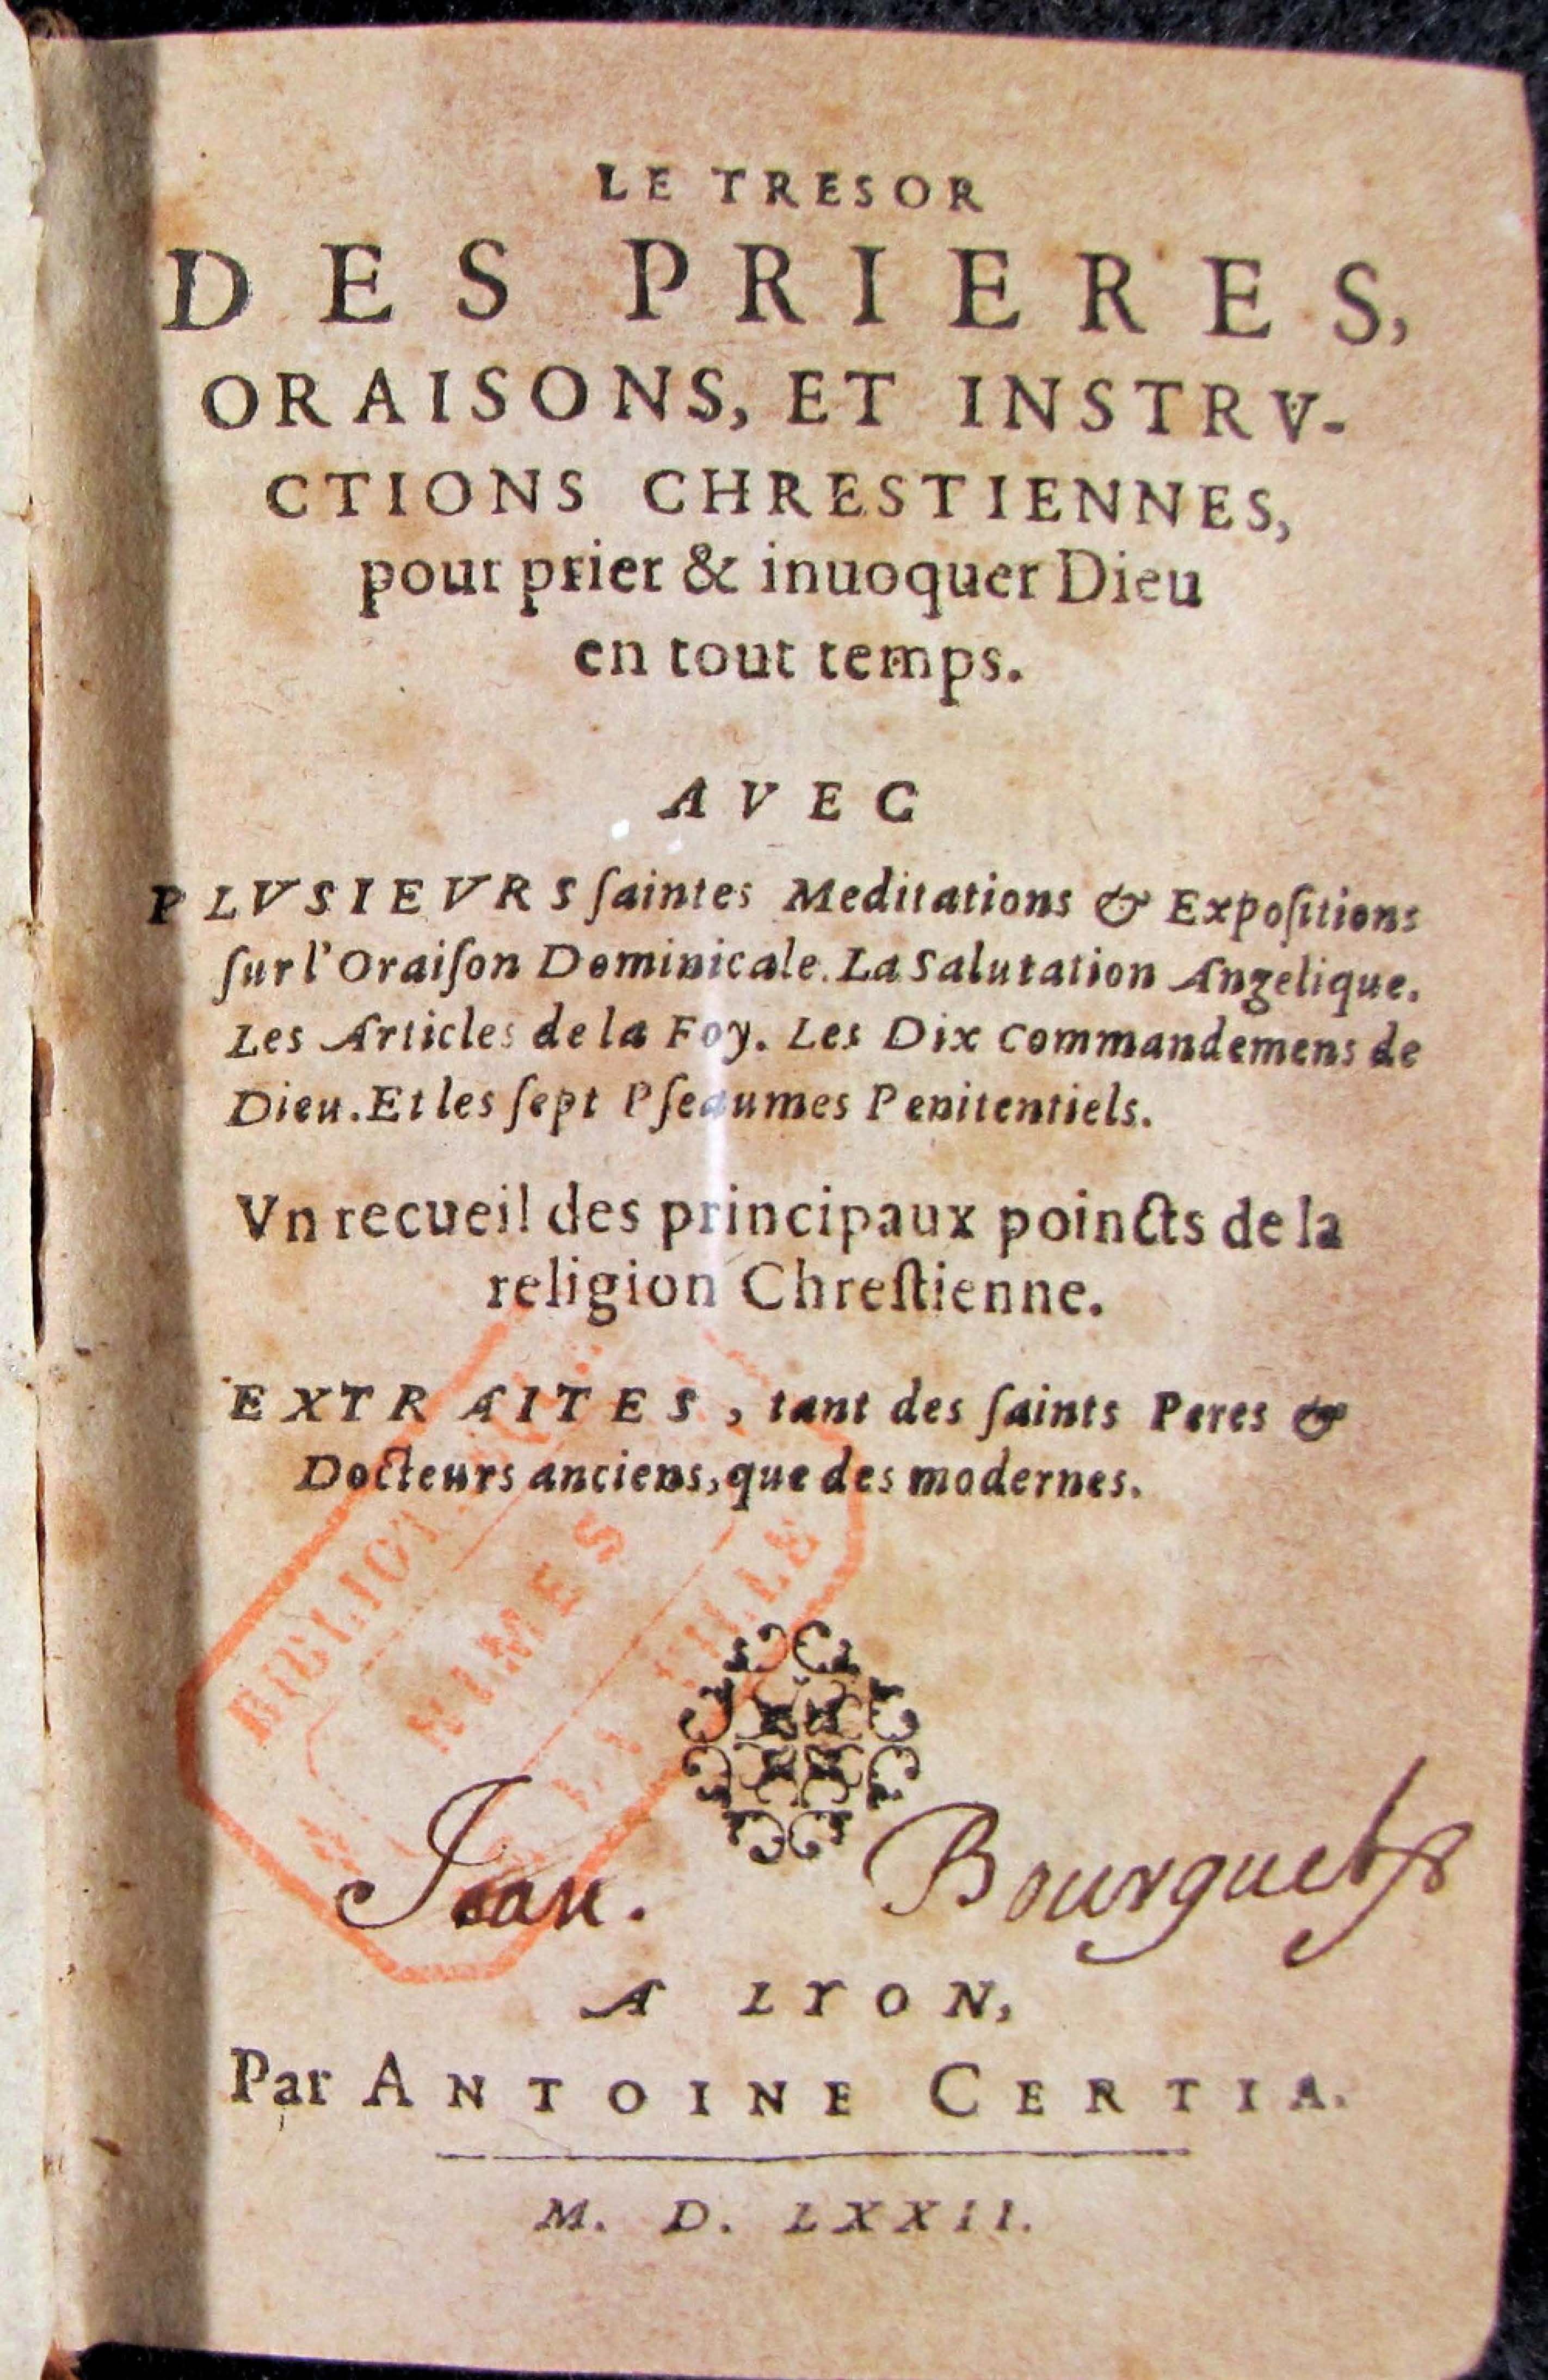 LE TRESOR
DES PRIERES,
ORAISONS, ET INSTRV-
CTIONS CHRESTIENNES,
pour prier & inuoquer Dieu
en tout temps.
AVEC
PLVSIEVRS ſaintes Meditations & Expoſitions
ſur l'Oraiſon Dominicale. La Salutation Angelique.
Les Articles de la Foy. Les Dix Commandemens de
Dieu. Et les ſept Pſeaumes Penitentiels.
Vn recueil des principaux poincts de la
religion Chreſtienne.
EXTRAITES, tant des ſaints Peres &
Docteurs anciens, que des modernes.
NIMES
VILLE
Jean. Bourguet
A LYON,
Par ANTOINE CERTIA.
M. D. LXXII.